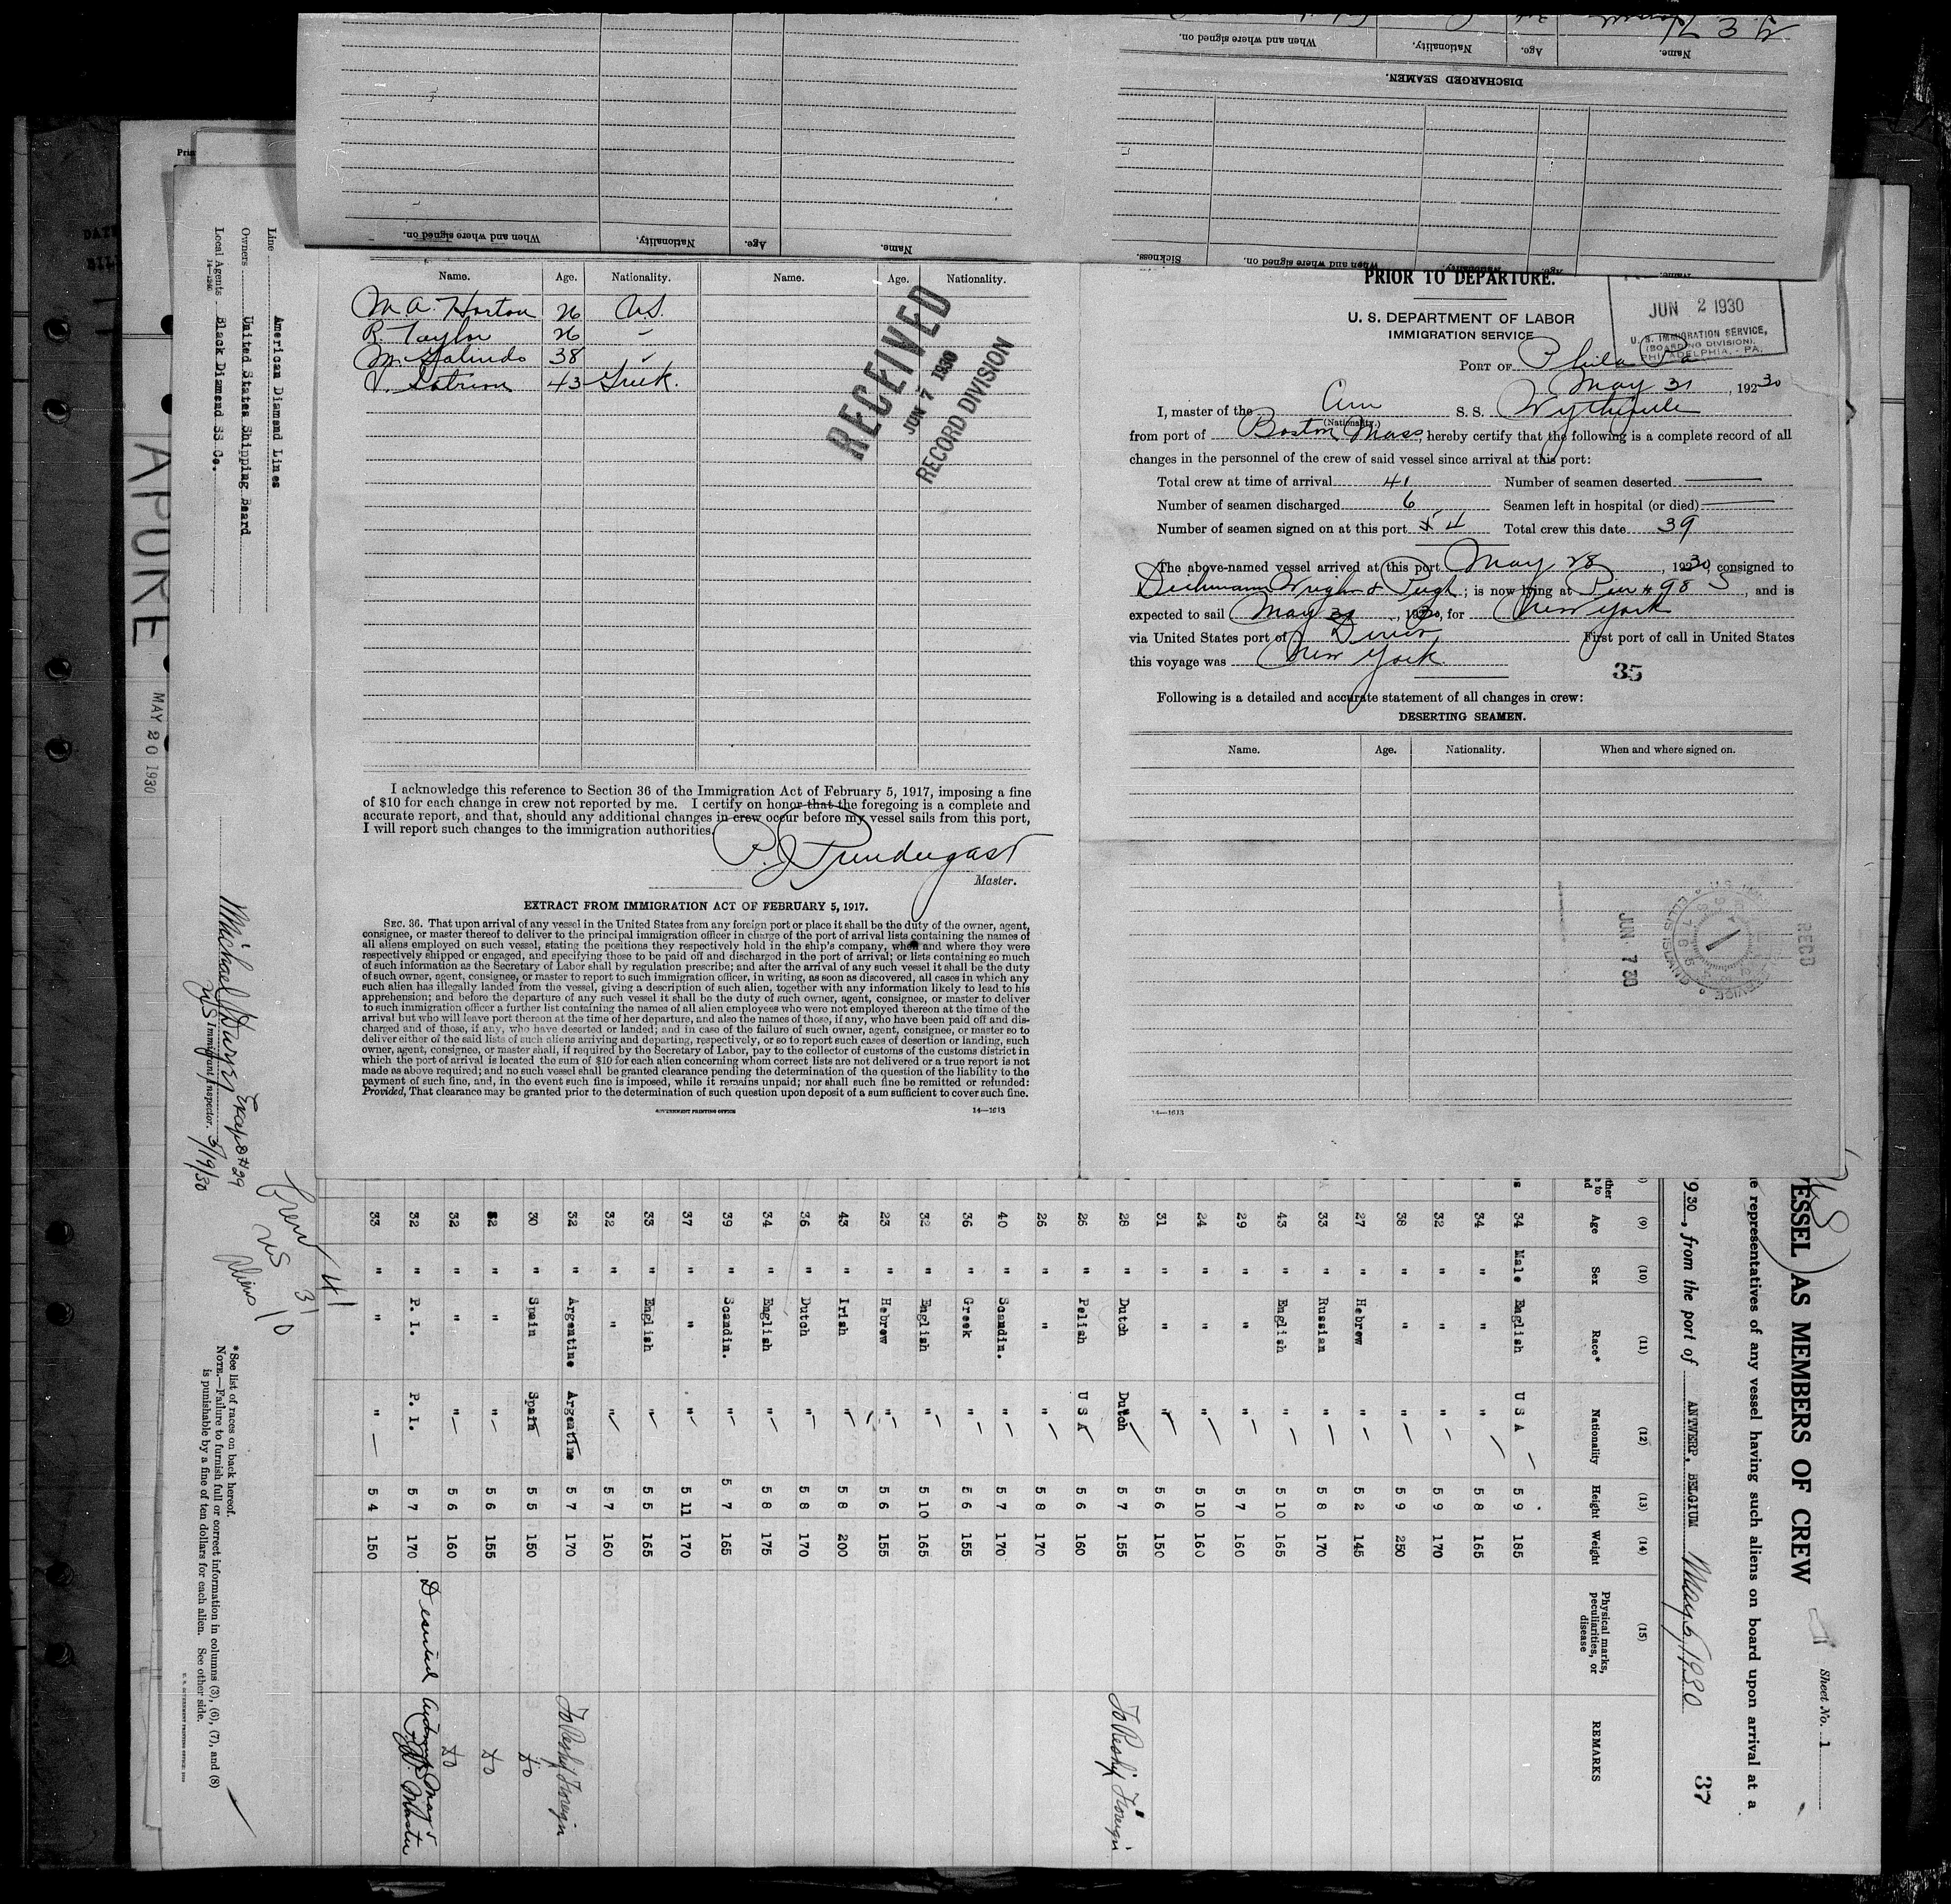 Name. Age. Nationality. When and where signed on.
DISCHARGED SEAMEN.
When and where signed on. Nationality. Age. Name.
Sickness. When and where signed on. Nationality. Age. Name.
Name. Age. Nationality. Name. Age. Nationality.
M. A. Horton 26 U.S.
R. Taylor 26 "
M. Galindo 38 "
43 Greek.
RECEIVED
JUN 7 1930
RECORD DIVISION
I acknowledge this reference to Section 36 of the Immigration Act of February 5, 1917, imposing a fine
of $10 for each change in crew not reported by me. I certify on honor that the foregoing is a complete and
accurate report, and that, should any additional changes in crew occur before my vessel sails from this port,
I will report such changes to the immigration authorities.
P. J. Prendergast
Master.
EXTRACT FROM IMMIGRATION ACT OF FEBRUARY 5, 1917.
SEC. 36. That upon arrival of any vessel in the United States from any foreign port or place it shall be the duty of the owner, agent,
consignee, or master thereof to deliver to the principal immigration officer in charge of the port of arrival lists containing the names of
all aliens employed on such vessel, stating the positions they respectively hold in the ship's company, when and where they were
respectively shipped or engaged, and specifying those to be paid off and discharged in the port of arrival; or lists containing so much
of such information as the Secretary of Labor shall by regulation prescribe; and after the arrival of any such vessel it shall be the duty
of such owner, agent, consignee, or master to report to such immigration officer, in writing, as soon as discovered, all cases in which any
such alien has illegally landed from the vessel, giving a description of such alien, together with any information likely to lead to his
apprehension; and before the departure of any such vessel it shall be the duty of such owner, agent, consignee, or master to deliver
to such immigration officer a further list containing the names of all alien employees who were not employed thereon at the time of the
arrival but who will leave port thereon at the time of her departure, and also the names of those, if any, who have been paid off and dis-
charged and of those, if any, who have deserted or landed; and in case of the failure of such owner, agent, consignee, or master so to
deliver either of the said lists of such aliens arriving and departing, respectively, or so to report such cases of desertion or landing, such
owner, agent, consignee, or master shall, if required by the Secretary of Labor, pay to the collector of customs of the customs district in
which the port of arrival is located the sum of $10 for each alien concerning whom correct lists are not delivered or a true report is not
made as above required; and no such vessel shall be granted clearance pending the determination of the question of the liability to the
payment of such fine, and, in the event such fine is imposed, while it remains unpaid; nor shall such fine be remitted or refunded:
Provided, That clearance may be granted prior to the determination of such question upon deposit of a sum sufficient to cover such fine.
GOVERNMENT PRINTING OFFICE 14—1613
PRIOR TO DEPARTURE.
U. S. DEPARTMENT OF LABOR
IMMIGRATION SERVICE
JUN 2 1930
U. S. IMMIGRATION SERVICE,
(BOARDING DIVISION),
PHILADELPHIA, - PA.
PORT OF Phila Pa
May 31, 1930
I, master of the Am S. S. Wytheville
(Nationality.)
from port of Boston Mass, hereby certify that the following is a complete record of all
changes in the personnel of the crew of said vessel since arrival at this port:
Total crew at time of arrival 41 Number of seamen deserted
Number of seamen discharged 6 Seamen left in hospital (or died)
Number of seamen signed on at this port 4 Total crew this date 39
The above-named vessel arrived at this port May 28, 1930, consigned to
Dichmann Wright & Pugh; is now lying at Pier # 98 S, and is
expected to sail May 31, 1930, for New York
via United States port of Direct First port of call in United States
this voyage was New York.
35
Following is a detailed and accurate statement of all changes in crew:
DESERTING SEAMEN.
Name. Age. Nationality. When and where signed on.
JUN 7 30
REC'D
14—1613
APURE
MAY 20 1930
Line American Diamond Lines
Owners United States Shipping Board
Local Agents Black Diamond SS Co.
14—1240
Immigrant Inspector. 5/19/30
Crew 41
US 31
Aliens 10
* See list of races on back hereof.
NOTE.—Failure to furnish full or correct information in columns (3), (6), (7), and (8)
is punishable by a fine of ten dollars for each alien. See other side.
Sheet No. 1
VESSEL AS MEMBERS OF CREW
representatives of any vessel having such aliens on board upon arrival at a
37
930, from the port of ANTWERP, BELGIUM May 6, 1930
(9) (10) (11) (12) (13) (14) (15)
Age Sex Race* Nationality Height Weight Physical marks, peculiarities, or disease REMARKS
34 Male English U S A 5 9 185
34 " " " 5 8 165
32 " " " 5 9 170
38 " " " 5 9 250
27 " Hebrew " 5 2 145
33 " Russian " 5 8 170
43 " English " 5 10 165
29 " " " 5 7 160
24 " " " 5 10 160
31 " " " 5 6 150
28 " Dutch Dutch 5 7 155 To Reship Foreign
26 " Polish U S A 5 6 160
26 " " " 5 8 170
40 " Scandin. " 5 7 170
36 " Greek " 5 6 155
32 " English " 5 10 165
23 " Hebrew " 5 6 155
43 " Irish " 5 8 200
36 " Dutch " 5 8 170
34 " English " 5 8 175
39 " Scandin. " 5 7 165
37 " " " 5 11 170
33 " English " 5 5 165
32 " " " 5 7 160
32 " Argentine Argentine 5 7 170 To Reship Foreign
30 " Spain Spain 5 5 150 do
32 " " " 5 6 155 do
32 " " " 5 6 160 do
32 " P. I. P. I. 5 7 170 Deserted
33 " " " 5 4 150